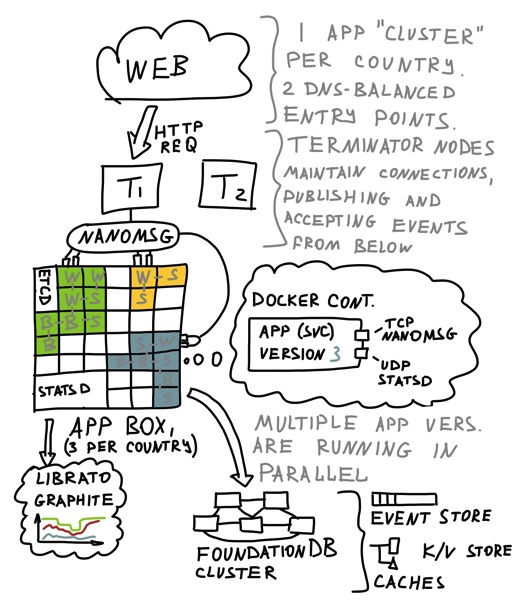 WEB
1 APP "CLUSTER"
PER COUNTRY.
2 DNS-BALANCED
ENTRY POINTS.
HTTP
REQ
TERMINATOR NODES
MAINTAIN CONNECTIONS,
PUBLISHING AND
ACCEPTING EVENTS
FROM BELOW
T1
T2
NANOMSG
ETCD
W W W-S
W-S S
B-B S
B S W
STATSD
DOCKER CONT.
APP (SVC)
VERSION 3
TCP
NANOMSG
UDP
STATSD
APP BOX,
(3 PER COUNTRY)
MULTIPLE APP VERS.
ARE RUNNING IN
PARALLEL
LIBRATO
GRAPHITE
FOUNDATIONDB
CLUSTER
EVENT STORE
K/V STORE
CACHES